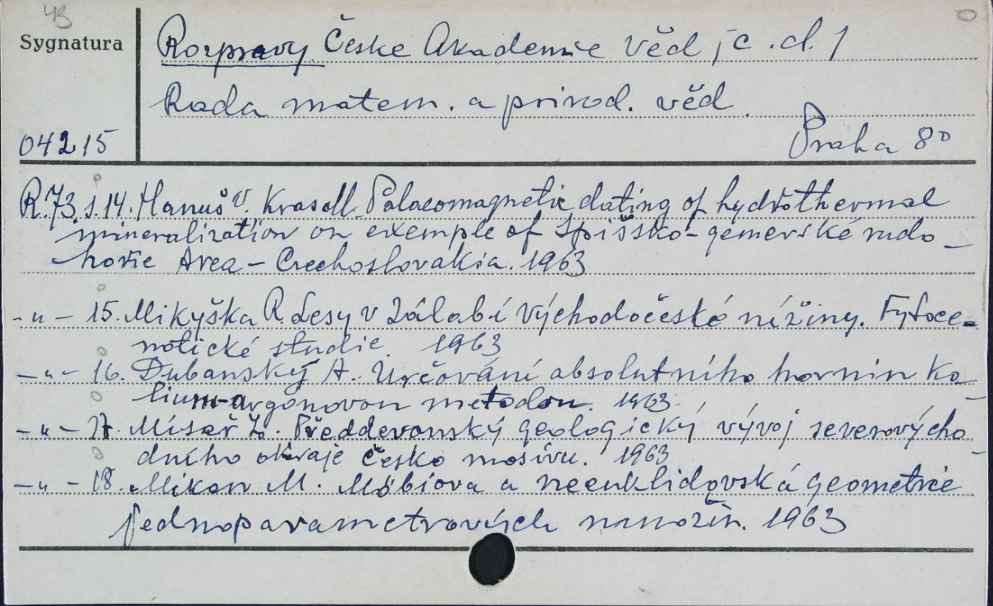 43
Sygnatura
Rozpravy České Akademie Věd, c.d. 1
Rada matem. a přírod. věd
04215
Praha 8°
R.73.s.14. Hanuš V. Krs a dl. Palaeomagnetic dating of hydrothermal
mineralization on exemple of Spišsko-gemerské rudo-
hořie Area - Czechoslovakia. 1963
-"- 15. Mikyška R. Lesy v Zálabí východočeské nížiny. Fytoce-
notické studie. 1963
-"- 16. Dubanský A. Určování absolutního hornin ka-
lium-argonovou metodou. 1963.
-"- 17. Mísař Z. Předdevonský geologický vývoj severových o-
dního okraje česko masivu. 1963
-"- 18. Mikan M. Möbiova a neeuklidovská geometrie
jednoparametrových množin. 1963